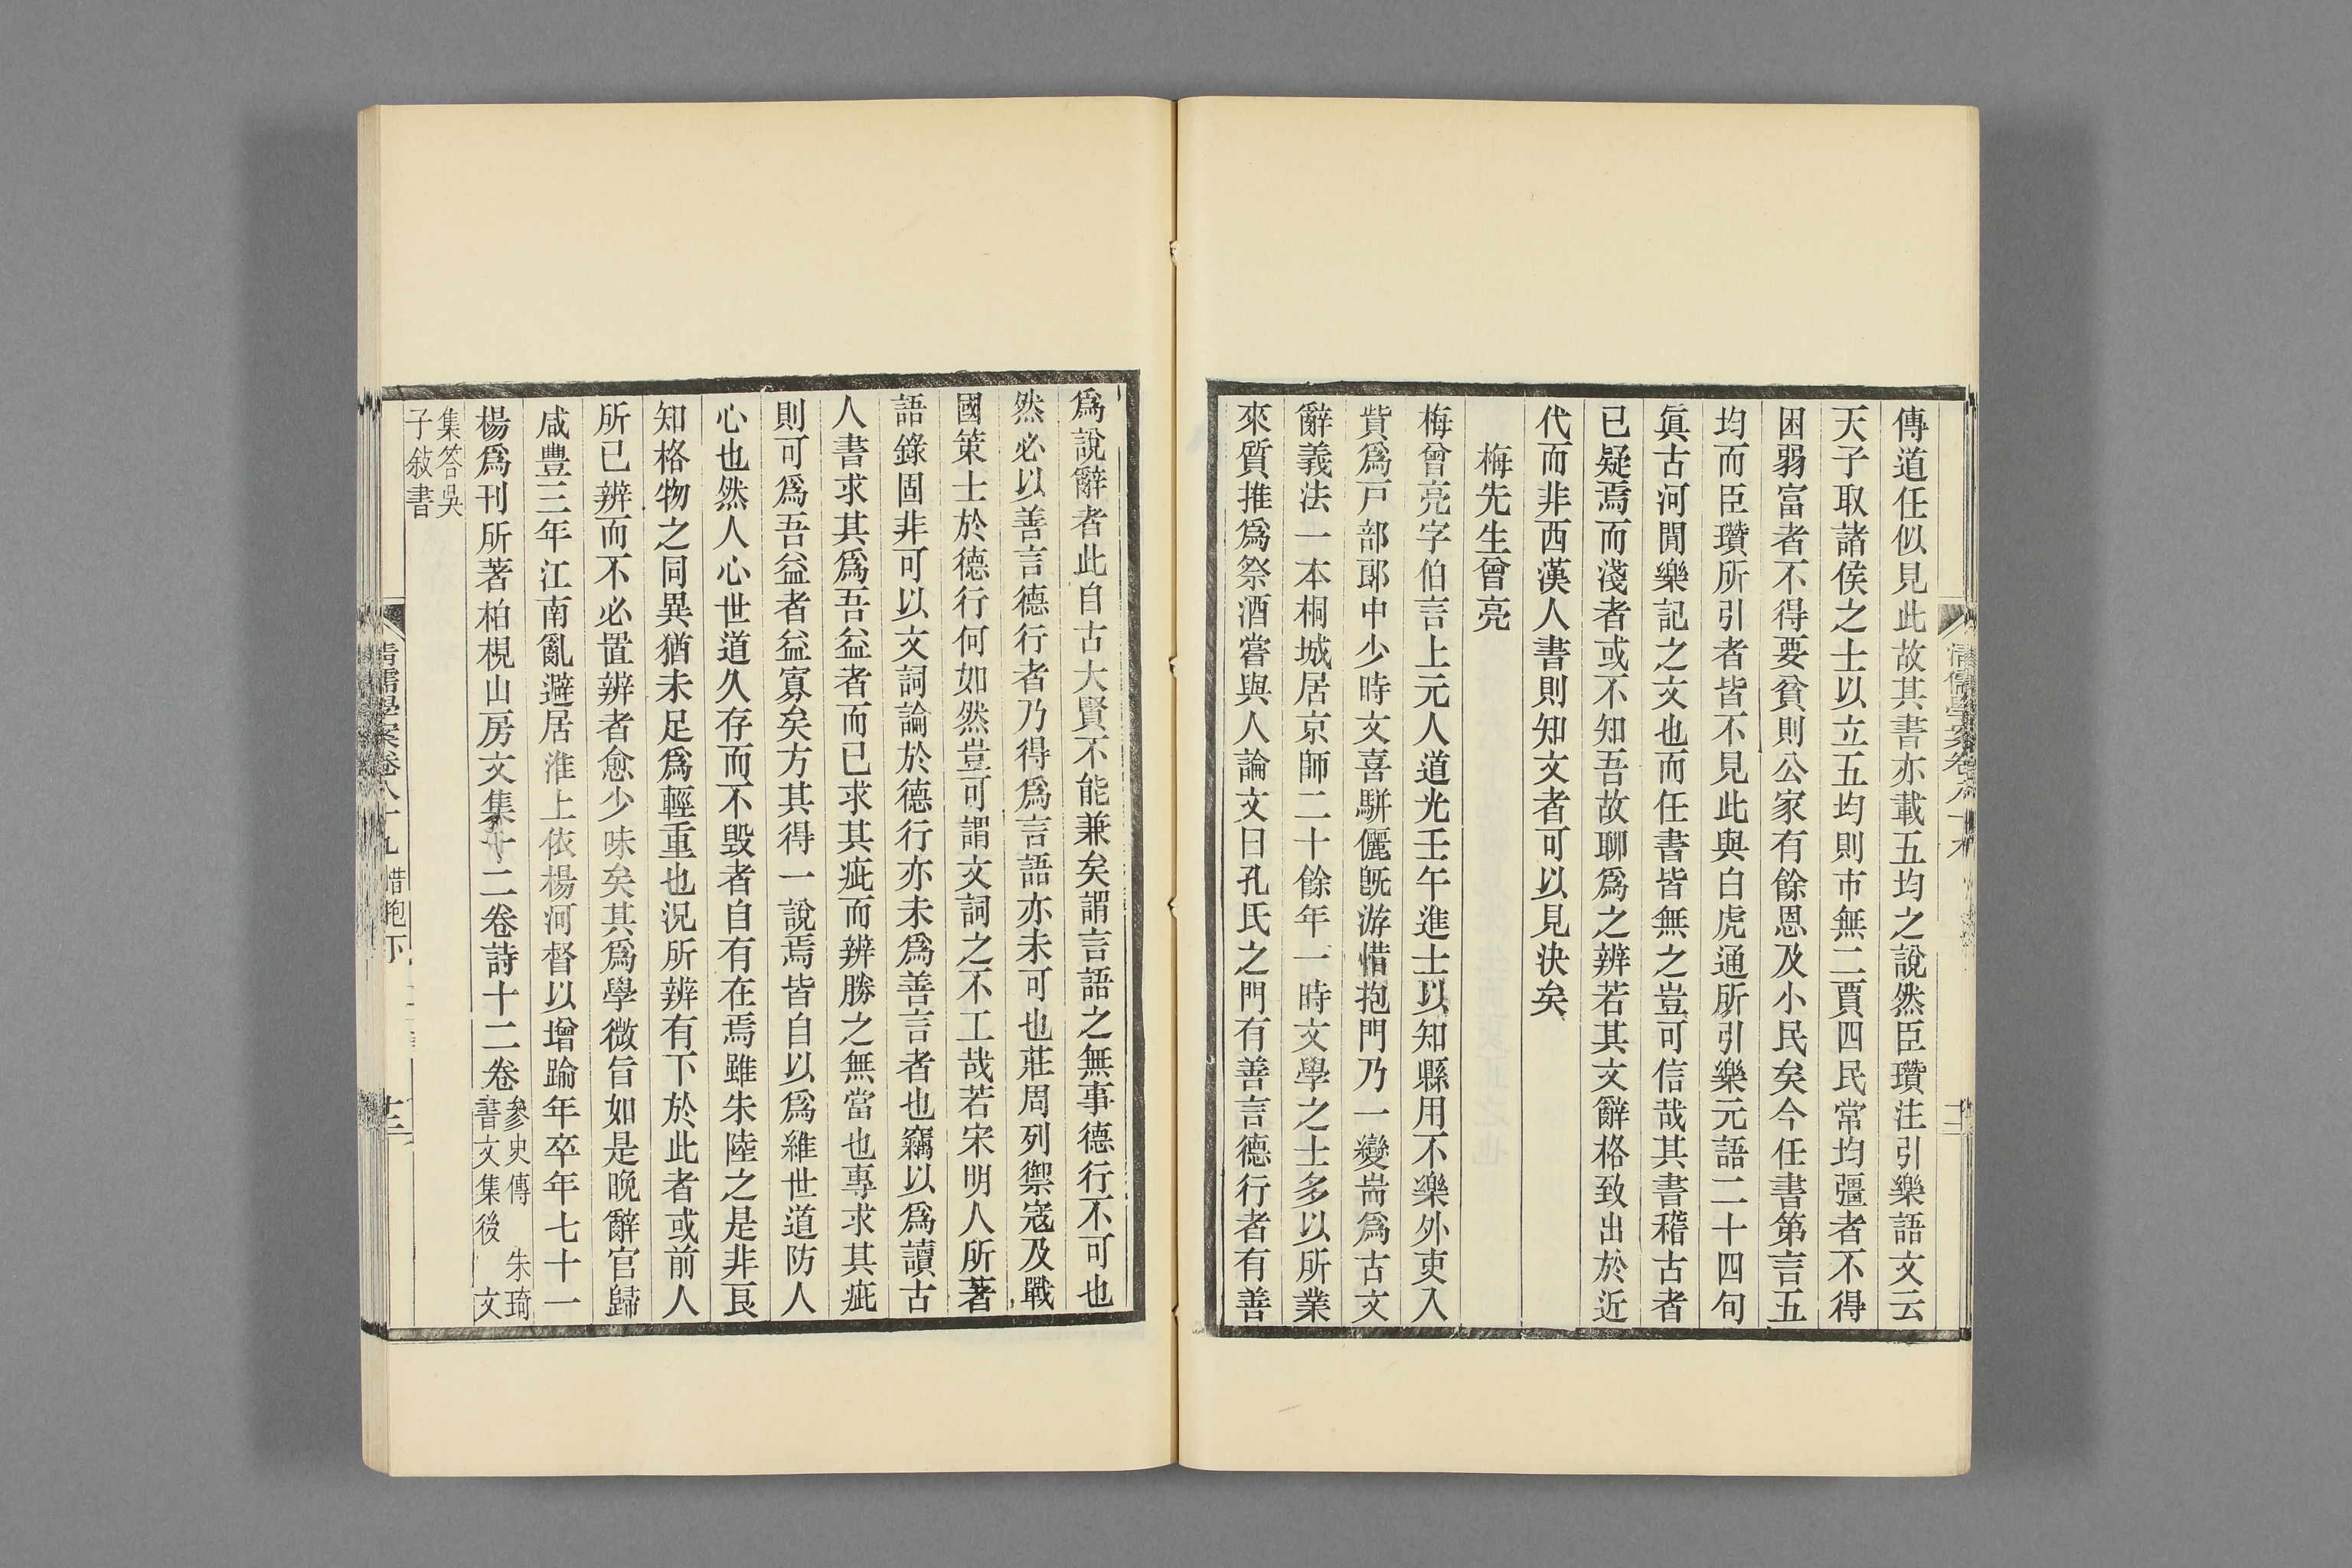 傳道任似見此故其書亦載五均之說然臣瓚注引樂語文云
天子取諸侯之士以立五均則市無二賈四民常均彊者不得
困弱富者不得要貧則公家有餘恩及小民矣今任書第言五
均而臣瓚所引者皆不見此與白虎通所引樂元語二十四句
眞古河閒樂記之文也而任書皆無之豈可信哉其書稽古者
已疑焉而淺者或不知吾故聊爲之辨若其文辭格致出於近
代而非西漢人書則知文者可以見決矣
梅先生曾亮
梅曾亮字伯言上元人道光壬午進士以知縣用不樂外吏入
貲爲戸部郎中少時文喜駢儷旣游惜抱門乃一變耑爲古文
辭義法一本桐城居京師二十餘年一時文學之士多以所業
來質推爲祭酒嘗與人論文曰孔氏之門有善言德行者有善
爲說辭者此自古大賢不能兼矣謂言語之無事德行不可也
然必以善言德行者乃得爲言語亦未可也莊周列禦寇及戰
國策士於德行何如然豈可謂文詞之不工哉若宋明人所著
語錄固非可以文詞論於德行亦未爲善言者也竊以爲讀古
人書求其爲吾益者而已求其疵而辨勝之無當也專求其疵
則可爲吾益者益寡矣方其得一說焉皆自以爲維世道防人
心也然人心世道久存而不毀者自有在焉雖朱陸之是非艮
知格物之同異猶未足爲輕重也況所辨有下於此者或前人
所已辨而不必置辨者愈少味矣其爲學微旨如是晚辭官歸
咸豐三年江南亂避居淮上依楊河督以增踰年卒年七十一
楊爲刊所著柏梘山房文集十二卷詩十二卷
參史傳　朱琦
書文集後　文
集答吳
子敍書
清儒學案卷八十九 惜抱下